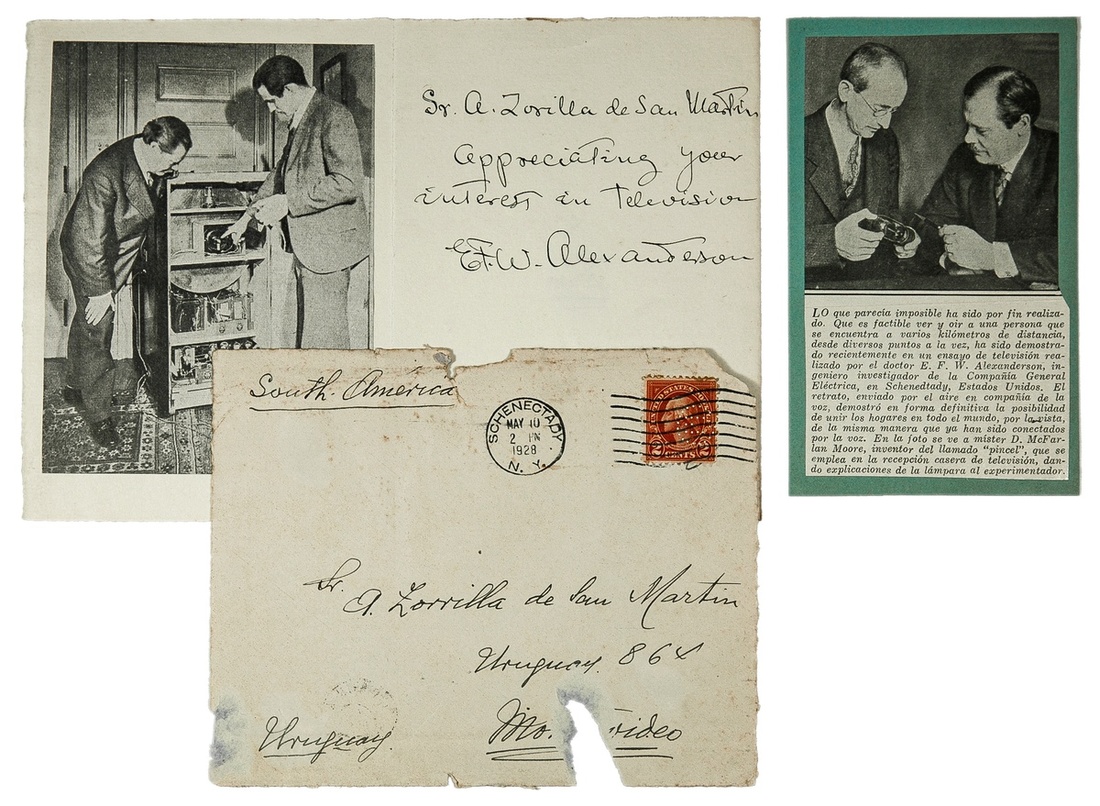 Sr. A. Zorilla de San Martin
Appreciating your
interest in Television
E.F.W. Alexanderson
LO que parecía imposible ha sido por fin realiza-
do. Que es factible ver y oir a una persona que
se encuentra a varios kilómetros de distancia,
desde diversos puntos a la vez, ha sido demostra-
do recientemente en un ensayo de televisión rea-
lizado por el doctor E. F. W. Alexanderson, in-
geniero investigador de la Compañía General
Eléctrica, en Schenedtady, Estados Unidos. El
retrato, enviado por el aire en compañía de la
voz, demostró en forma definitiva la posibilidad
de unir los hogares en todo el mundo, por la vista,
de la misma manera que ya han sido conectados
por la voz. En la foto se ve a míster D. McFar-
lan Moore, inventor del llamado "pincel", que se
emplea en la recepción casera de televisión, dan-
do explicaciones de la lámpara al experimentador.
South. América
SCHENECTADY
MAY 10
2 PM
1928
N. Y.
2 CENTS 2
Sr. A. Zorrilla de San Martin
Uruguay 864
Uruguay. Mo. video